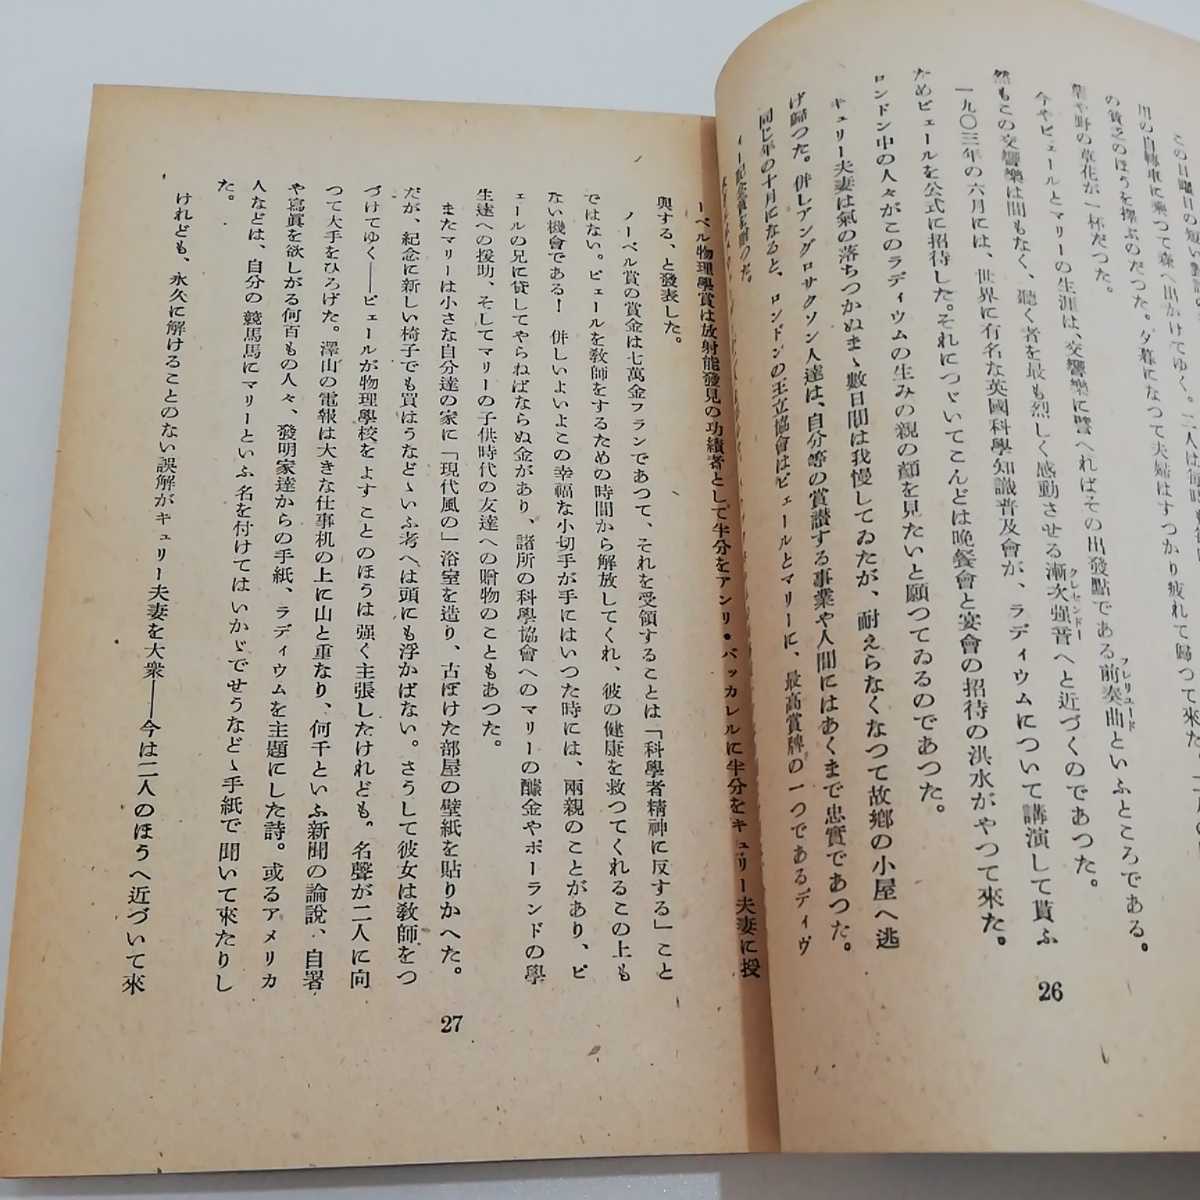 この日曜日の短い
川の自轉車に乘つて森へ出かけてゆく。二人は
の貧乏のほうを擇ぶのだつた。夕暮になつて夫婦はすつかり疲れて歸つて來た
や野の草花が一杯だつた。
今やピェールとマリーの生涯は、交響樂に譬へればその出發點である前奏曲といふところである。
プレリュード
然もこの交響樂は間もなく、聽く者を最も烈しく感動させる漸次强音へと近づくのであつた。
クレセンドー
一九〇三年の六月には、世界に有名な英國科學知識普及會が、ラディウムについて講演して貰ふ
ためピェールを公式に招待した。それにつゞいてこんどは晩餐會と宴會の招待の洪水がやつて來た。
ロンドン中の人々がこのラディウムの生みの親の顏を見たいと願つてゐるのであつた。
キュリー夫妻は氣の落ちつかぬまゝ數日間は我慢してゐたが、耐えらなくなつて故鄕の小屋へ逃
げ歸つた。併しアングロサクソン人達は、自分等の賞讃する事業や人間にはあくまで忠實であつた。
同じ年の十月になると、ロンドンの王立協會はピェールとマリーに、最高賞牌の一つであるディヴ
ィー記念賞を贈つた。
26
ーベル物理學賞は放射能發見の功績者として半分をアンリ・バッカレルに半分をキュリー夫妻に授
與する、と發表した。
ノーベル賞の賞金は七萬金フランであつて、それを受領することは「科學者精神に反する」こと
ではない。ピェールを敎師をするための時間から解放してくれ、彼の健康を救つてくれるこの上も
ない機會である！ 併しいよいよこの幸福な小切手が手にはいつた時には、兩親のことがあり、ピ
ェールの兄に貸してやらねばならぬ金があり、諸所の科學協會へのマリーの醵金やポーランドの學
生達への援助、そしてマリーの子供時代の友達への贈物のこともあつた。
またマリーは小さな自分達の家に「現代風の」浴室を造り、古ぼけた部屋の壁紙を貼りかへた。
だが、紀念に新しい椅子でも買はうなどゝいふ考へは頭にも浮かばない。さうして彼女は敎師をつ
づけてゆく――ピェールが物理學校をよすことのほうは强く主張したけれども。名聲が二人に向
つて大手をひろげた。澤山の電報は大きな仕事机の上に山と重なり、何千といふ新聞の論說、自署
や寫眞を欲しがる何百もの人々、發明家達からの手紙、ラディウムを主題にした詩。或るアメリカ
人などは、自分の競馬馬にマリーといふ名を付けてはいかゞでせうなどゝ手紙で聞いて來たりし
た。
けれども、永久に解けることのない誤解がキュリー夫妻を大衆――今は二人のほうへ近づいて來
27